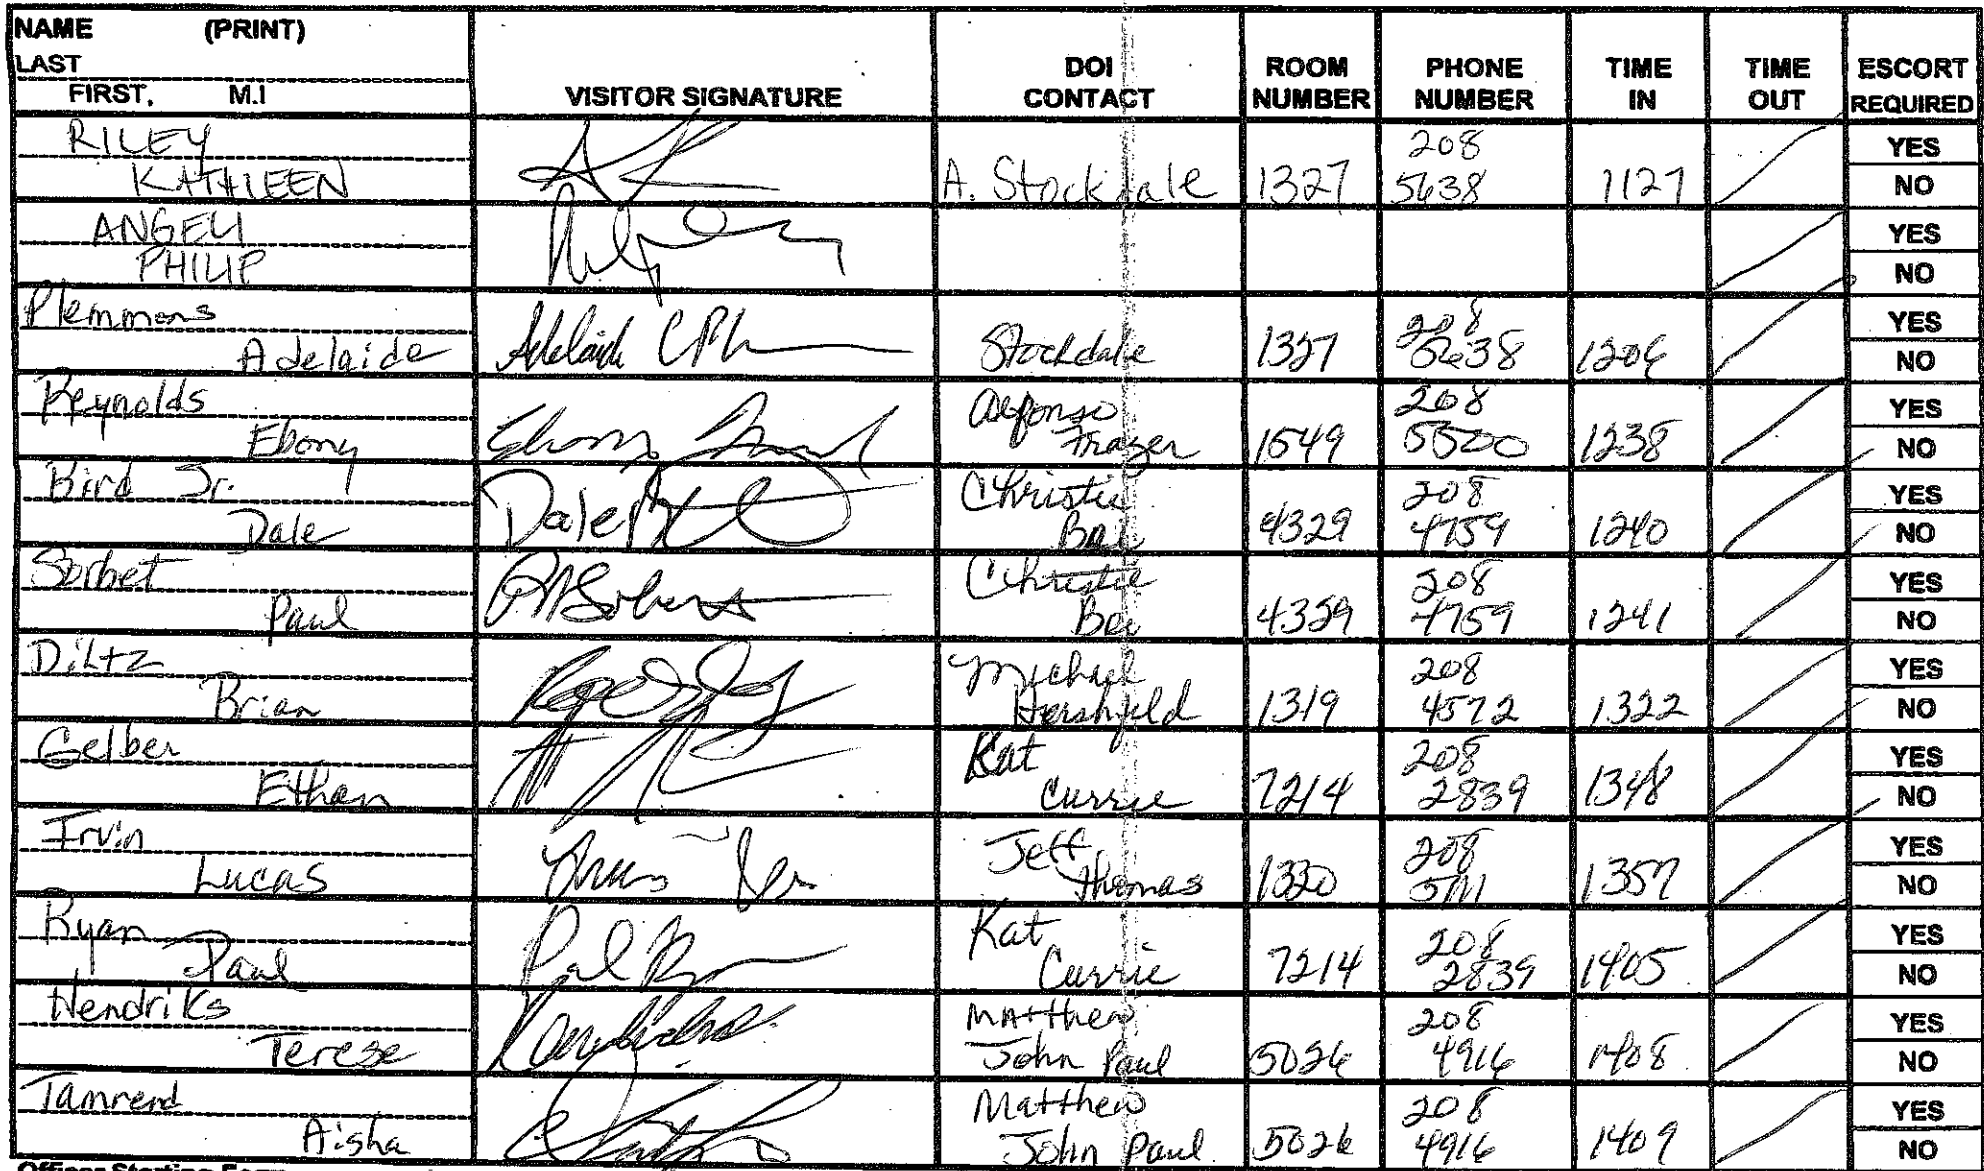 NAME (PRINT)
LAST
FIRST, M.I
VISITOR SIGNATURE
DOI
CONTACT
ROOM
NUMBER
PHONE
NUMBER
TIME
IN
TIME
OUT
ESCORT
REQUIRED
RILEY
KATHLEEN
A. Stockdale
1327
208
5638
1127
YES
NO
ANGELI
PHILIP
YES
NO
Plemmons
Adelaide
Adelaide
Stockdale
1327
208
5638
YES
NO
Reynolds
Ebony
Alfonso
Frazer
1549
208
5500
1238
YES
NO
Bird Jr.
Dale
Dale
Christie
4329
208
4759
1240
YES
NO
Sorbet
Paul
Christie
4329
208
4759
1241
YES
NO
Diltz
Brian
Michael
Hershfeld
1319
208
4572
1322
YES
NO
Gelber
Ethan
Kat
Currie
7214
208
2839
1348
YES
NO
Irvin
Lucas
Jeff
Thomas
1320
208
1357
YES
NO
Ryan
Paul
Paul
Kat
Currie
7214
208
2839
1405
YES
NO
Hendriks
Terese
Matthew
John Paul
5026
208
4916
1408
YES
NO
Tamrend
Aisha
Matthew
John Paul
5026
208
4916
1409
YES
NO